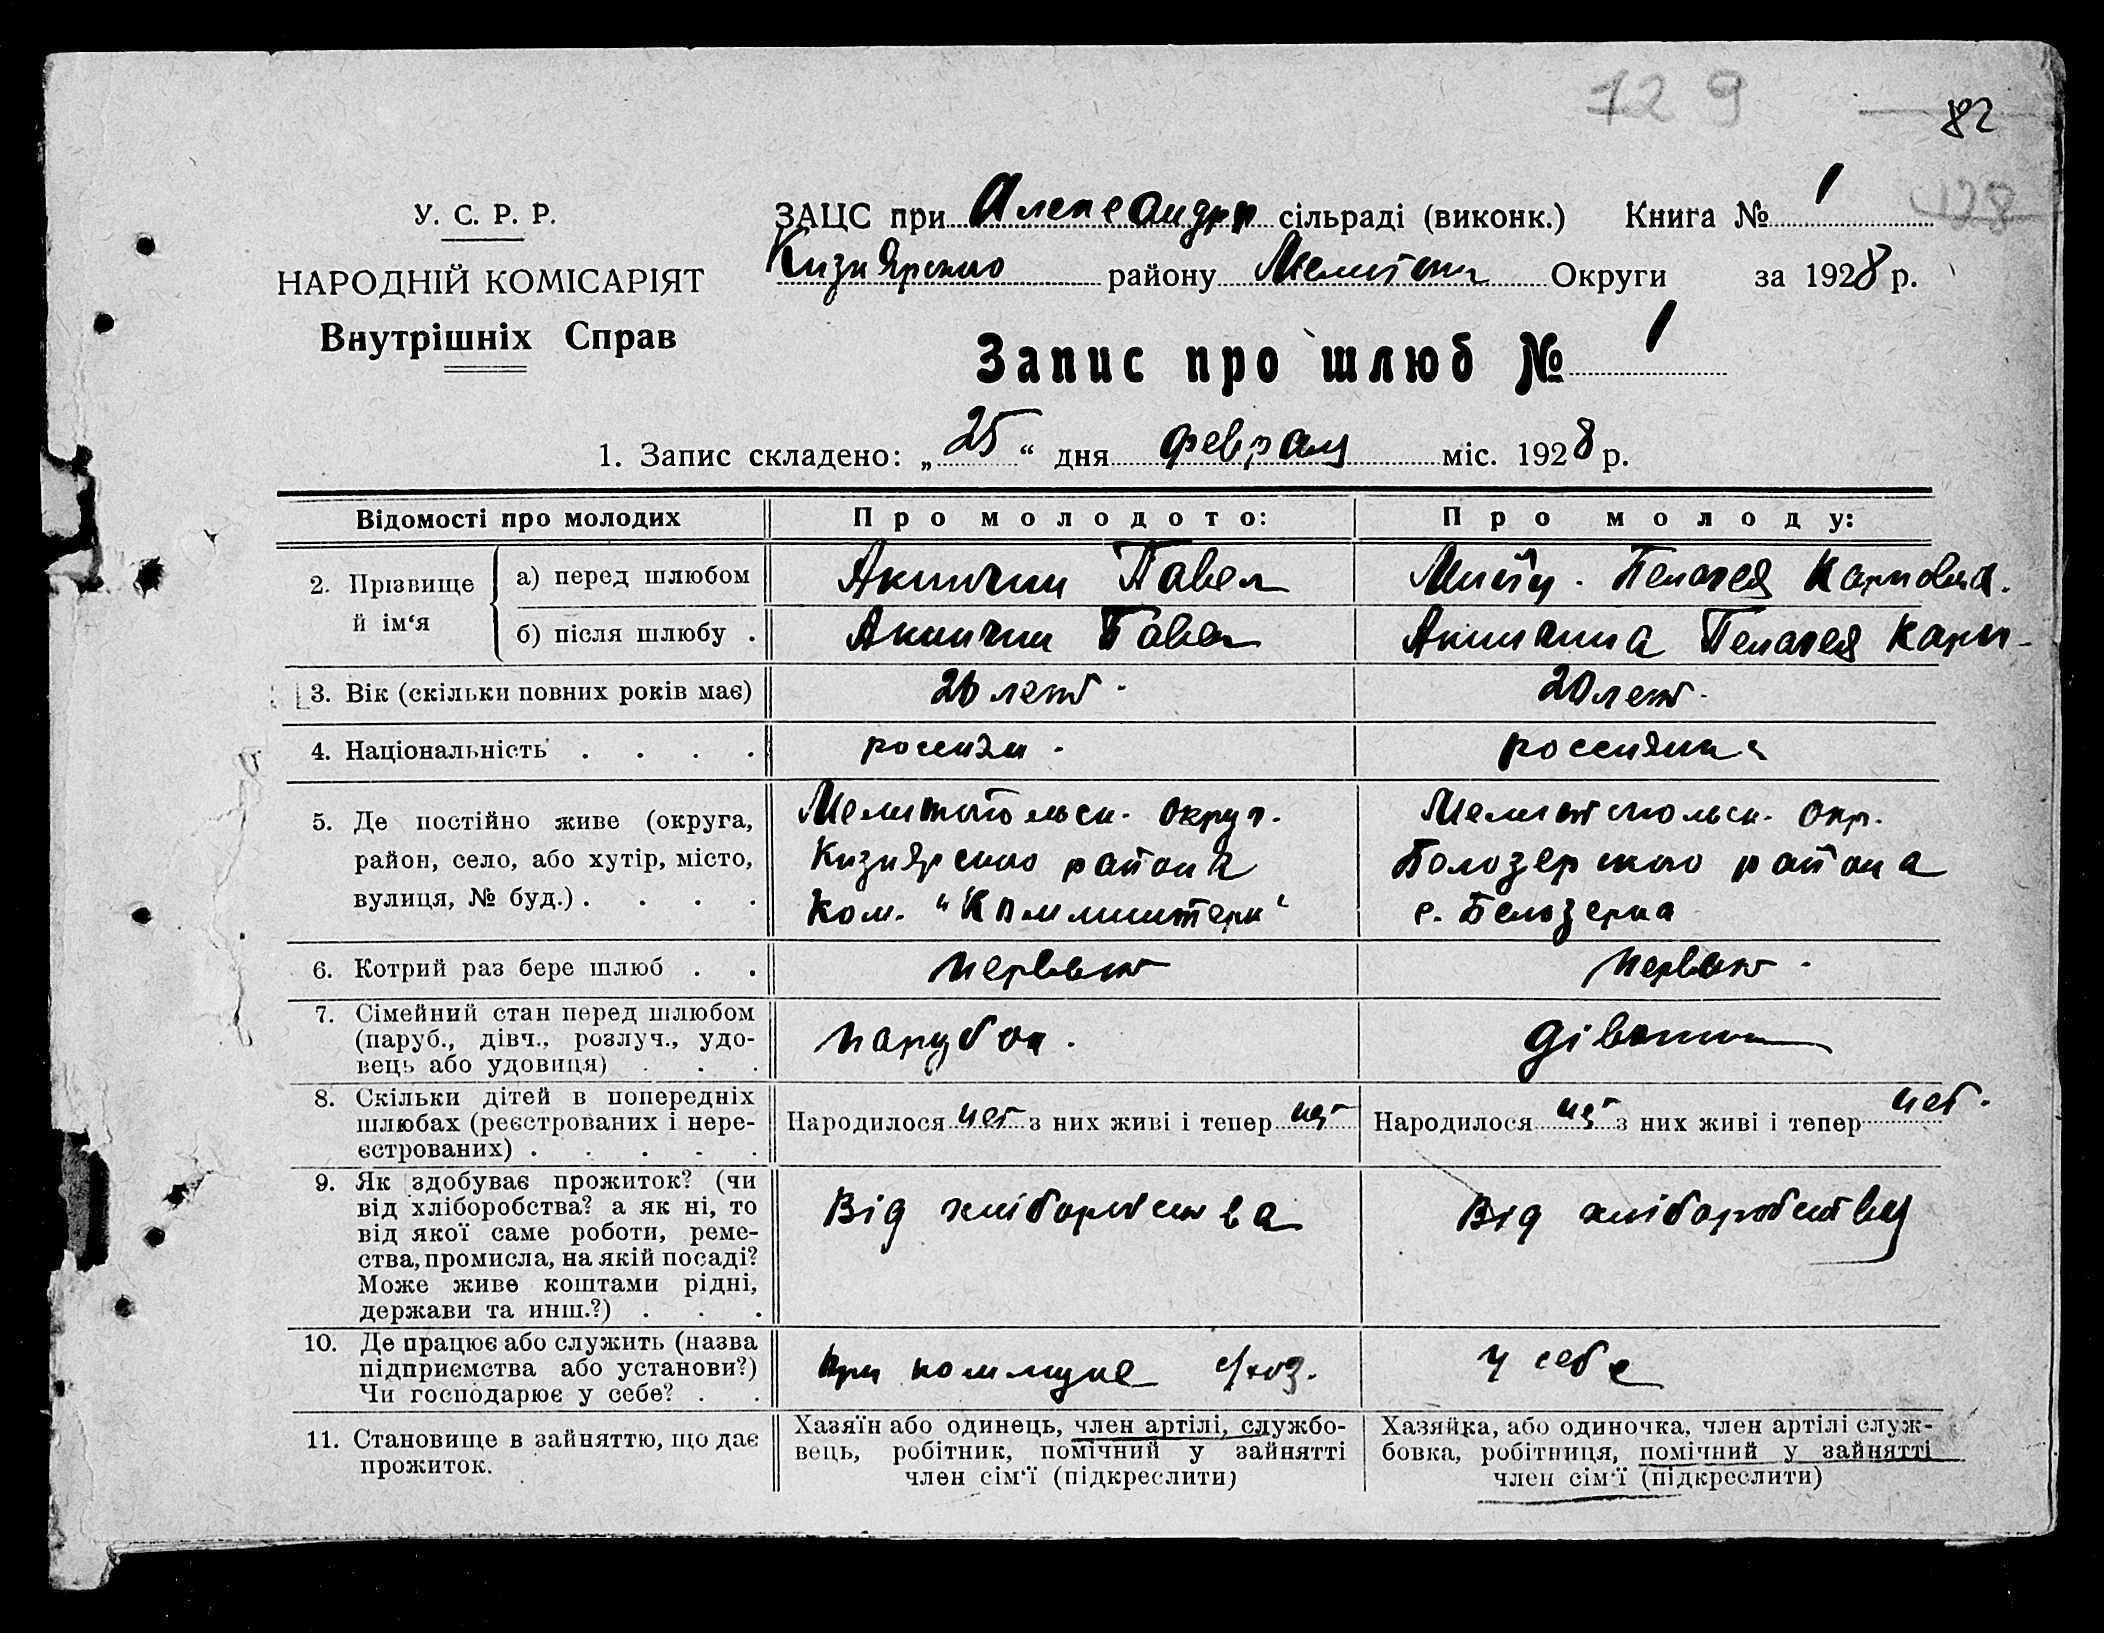 129
82
128
У. С. Р. Р.
НАРОДНІЙ КОМІСАРІЯТ
Внутрішніх Справ
ЗАЦС при Александр сільраді (виконк.) Книга № 1
КизиЯрского району Мелитоп Округи за 1928 р.
Запис про шлюб № 1
1. Запис складено: „25“ дня февраля міс. 1928 р.
Відомості про молодих Про молодото: Про молоду:
2. Прізвище й ім‘я
а) перед шлюбом Акиничин Павел Пелагея Карповна.
б) після шлюбу . Акиничин Павел Акиничина Пелагея Карп-
3. Вік (скільки повних років має) 26 лет. 20 лет.
4. Національність . . . . россиян. россиянка
5. Де постійно живе (округа,
район, село, або хутір, місто,
вулиця, № буд.) . . . .
Мелитопольск. округ.
КизиЯрского района
Ком. "Коминтерн"
Мелитопольск. окр.
Белозерского района
с. Белозерка
6. Котрий раз бере шлюб . . первый первый.
7. Сімейний стан перед шлюбом
(паруб., дівч., розлуч., удо-
вець або удовиця) . . .
парубок. дівчина
8. Скільки дітей в попередніх
шлюбах (реєстрованих і нере-
єстрованих) . . . . .
Народилося нет з них живі і тепер нет
Народилося нет з них живі і тепер нет.
9. Як здобуває прожиток? (чи
від хліборобства? а як ні, то
від якої саме роботи, реме-
ства, промисла, на якій посаді?
Може живе коштами рідні,
держави та инш.?) . . .
Від хліборобства Від хліборобства
10. Де працює або служить (назва
підприємства або установи?)
Чи господарює у себе? . .
при коммуне с/хоз. у себе
11. Становище в зайняттю, що дає
прожиток.
Хазяїн або одинець, член артілі, службо-
вець, робітник, помічний у зайнятті
член сім‘ї (підкреслити)
Хазяйка, або одиночка, член артілі служ-
бовка, робітниця, помічний у зайнятті
член сім‘ї (підкреслити)